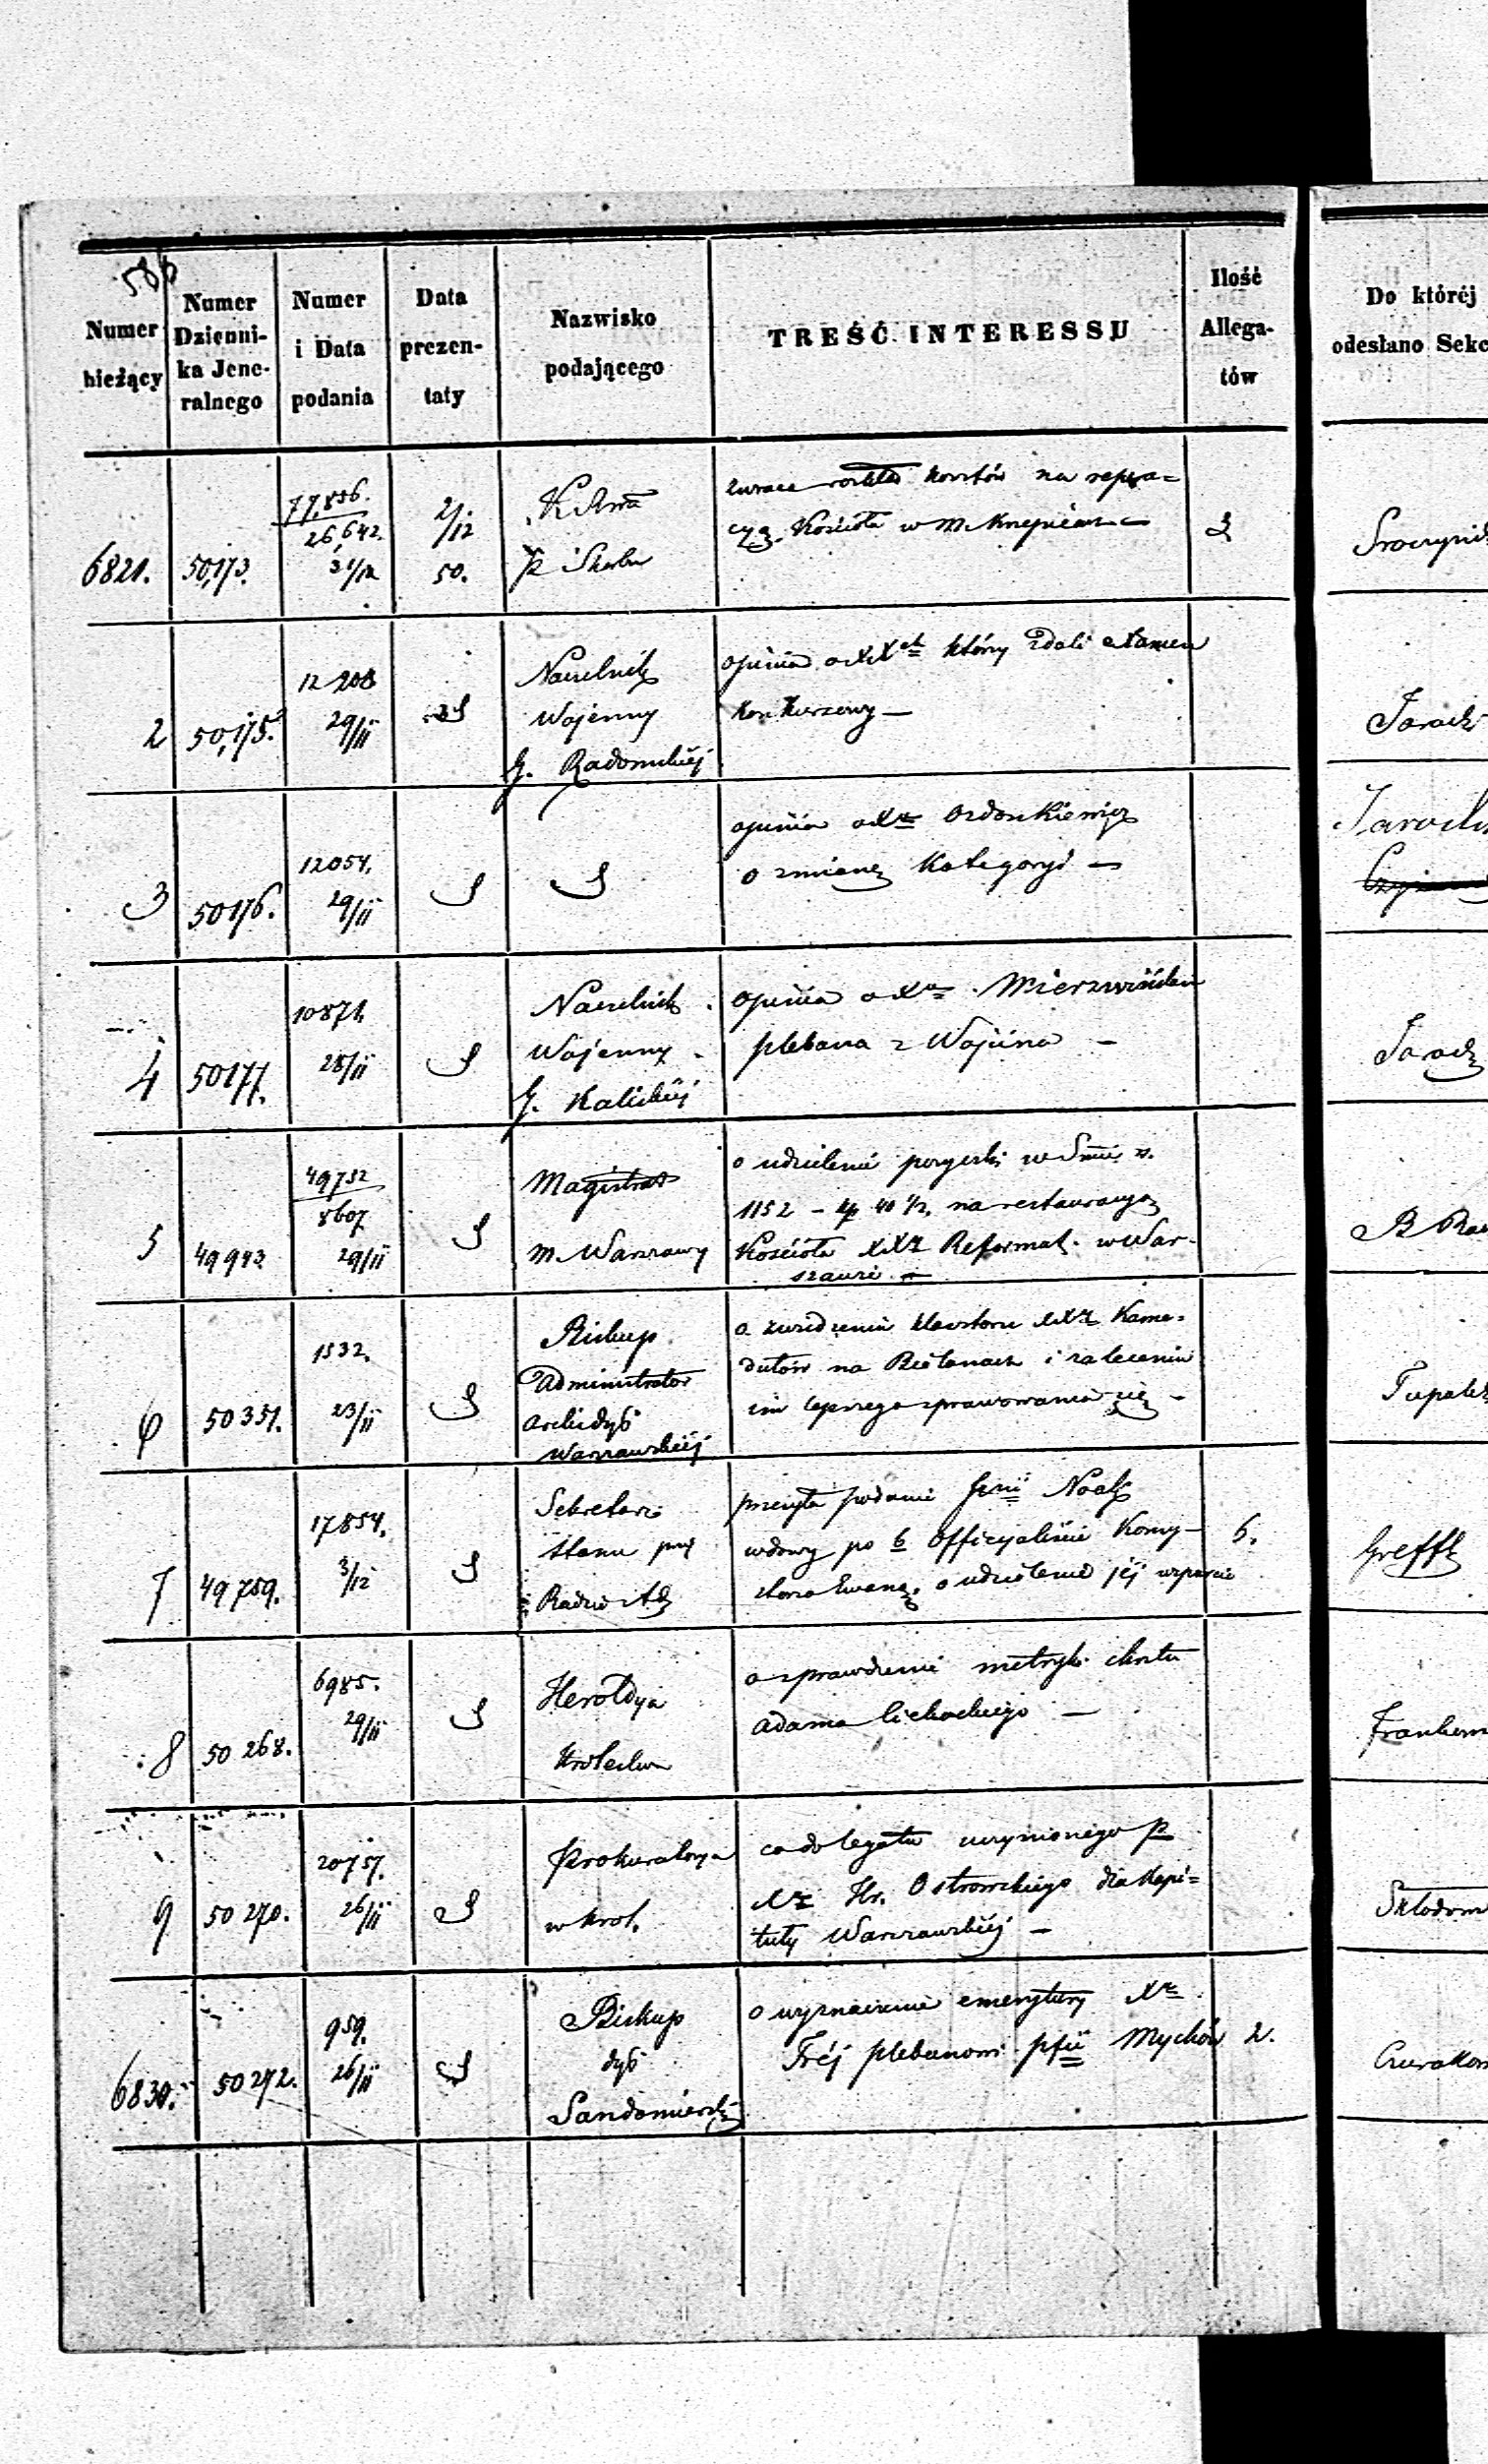 586
Numer bieżący
Numer Dzienni-
ka Jene-
ralnego
Numer i Data podania
Data prezen-
taty
Nazwisko podającego
TREŚĆ INTERESSU
Ilość Allega-
tów
Do któréj
odesłano Sekc
6821.
50,173.
77,856.
26,642.
2/12
50.
Skarbu
zwraca rozkład kosztów na repra=
cyą Kościoła w m.
3
2
50,175.
12 208
29/11
Naczelnik
Wojenny
G. Radomskiéj
opinia o XXch którzy zdali examen
konkursowy —
3
50176.
12054.
29/11
opinia o Xzu Ordonkiewicz
o zmianę Kategoryi —
4
50177.
10871.
28/11
Naczelnik
Wojenny
G. Kaliskiéj
opinia o Xu
plebana z Wojsina —
5
49 943
49732
8607
29/11
Magistrat
m. Warszawy
o udzielenie pożyczki w Summie rs.
1152 – kp 40 1/2, na restauracyą
Kościoła XXz Reformat. w War-
szawie —
6
50351.
1532.
23/11
Biskup
Administrator
Archidyec
Warszawskiéj
o zwiedzeniu klasztoru XXz Kame-
dułów na Bielanach i zaleceniu
im lepszego sprawowania się —
7
49759.
17854.
3/12
Sekretarz
Stanu przy
Radzie Ad
przesyła podanie Noak
wdowy po b Officyaliście Konsy-
storza Ewang. o udzielenie jéj wsparcia
6.
Greffk
8
50 268.
6985.
29/11
Heroldya
Królestwa
o sprawdzenie metryk. chrztu
Adama Cichockiego —
9
50 270.
20757.
26/11
Prokuratorya
w Król.
co do legatu uczynionego p
Xz Hr. Ostrowskiego dla Kapi=
tuły Warszawskiéj —
6830.
50272.
959.
26/11
Biskup
dyec
Sandomierski
o wyznaczenie emerytury Xz
Fréj plebanowi pfii Mychów
2.